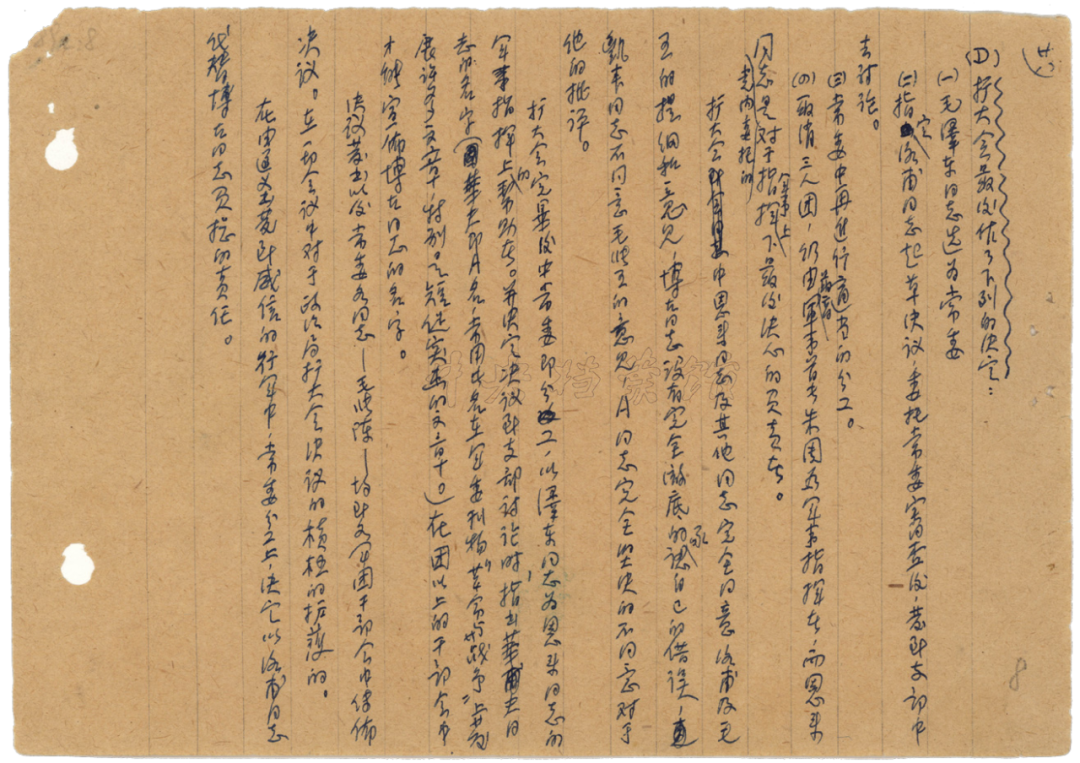 (D)扩大会最后作了下列的决定：
(一)毛泽东同志选为常委
(二)指定洛甫同志起草决议，委托常委审查后，发到支部中
去讨论。
(三)常委中再进行适当的分工。
(四)取消三人团，仍由最高军事首长朱周为军事指挥者，而恩来
同志是党内委托的对于指挥军事上下最后决心的负责者。
扩大会中恩来同志及其他同志完全同意洛甫及毛
王的提纲和意见，博古同志没有完全澈底的承认自己的错误，
凯丰同志不同意毛张王的意见，A同志完全坚决的不同意对于
他的批评。
扩大会完毕后中常委即分工，以泽东同志为恩来同志的
军事指挥上的帮助者。并决定决议到支部讨论时，指出华夫同
志的名字(华夫即A名，常用此名在军委刊物“革命与战争”上发
展许多文章，特别是短促突击的文章。)在团以上的干部会中
才能宣佈博古同志的名字。
决议发出以后常委各同志—毛张陈—均到各军团干部会中传佈
决议。在一切会议中对于政治局扩大会决议的积极的拥护的。
在由遵义出发到威信的行军中，常委分工上，决定以洛甫同志
代替博古同志负总的责任。
8